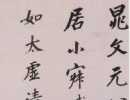 晁文元
居小寐
如太虚清